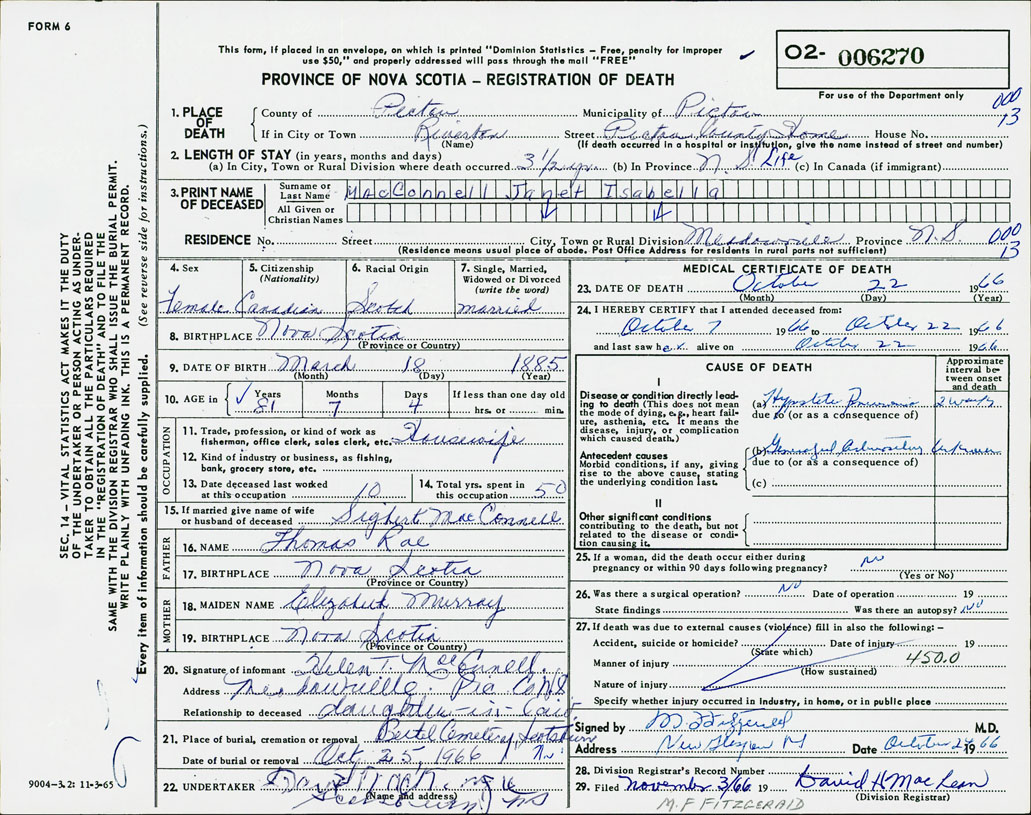 FORM 6
This form, if placed in an envelope, on which is printed "Dominion Statistics – Free, penalty for improper
use $50," and properly addressed will pass through the mail "FREE"
PROVINCE OF NOVA SCOTIA – REGISTRATION OF DEATH
O2- 006270
For use of the Department only
000
13
SEC. 14 – VITAL STATISTICS ACT MAKES IT THE DUTY
OF THE UNDERTAKER OR PERSON ACTING AS UNDER-
TAKER TO OBTAIN ALL THE PARTICULARS REQUIRED
IN THE "REGISTRATION OF DEATH" AND TO FILE THE
SAME WITH THE DIVISION REGISTRAR WHO SHALL ISSUE THE BURIAL PERMIT.
WRITE PLAINLY WITH UNFADING INK. THIS IS A PERMANENT RECORD.
Every item of information should be carefully supplied. (See reverse side for instructions.)
1. PLACE OF DEATH
County of Pictou Municipality of Pictou
If in City or Town Riverton Street Pictou County Home House No.
(Name) (If death occurred in a hospital or institution, give the name instead of street and number)
2. LENGTH OF STAY (in years, months and days)
(a) In City, Town or Rural Division where death occurred 3 1/2 yr. (b) In Province N.S. Life (c) In Canada (if immigrant)
3. PRINT NAME OF DECEASED
Surname or Last Name MacConnell Janet Isabella
All Given or Christian Names
RESIDENCE No. Street City, Town or Rural Division Meadowville Province N.S. 000
13
(Residence means usual place of abode. Post Office Address for residents in rural parts not sufficient)
4. Sex Female
5. Citizenship (Nationality) Canadian
6. Racial Origin Scotch
7. Single, Married, Widowed or Divorced (write the word) married
8. BIRTHPLACE Nova Scotia
(Province or Country)
9. DATE OF BIRTH March 18 1885
(Month) (Day) (Year)
10. AGE in Years 81 Months 7 Days 4 If less than one day old hrs. or min.
OCCUPATION
11. Trade, profession, or kind of work as fisherman, office clerk, sales clerk, etc. Housewife
12. Kind of industry or business, as fishing, bank, grocery store, etc.
13. Date deceased last worked at this occupation 10
14. Total yrs. spent in this occupation 50
15. If married give name of wife or husband of deceased Sigbert MacConnell
FATHER
16. NAME Thomas Rae
17. BIRTHPLACE Nova Scotia
(Province or Country)
MOTHER
18. MAIDEN NAME Elizabeth Murray
19. BIRTHPLACE Nova Scotia
(Province or Country)
20. Signature of informant Helen T. MacConnell.
Address Meadowville Pic. Co. N.S
Relationship to deceased daughter-in-law
21. Place of burial, cremation or removal Cemetery, Scotsburn
Date of burial or removal Oct 25, 1966
22. UNDERTAKER
(Name and address)
Scotsburn, NS
9004-3.2: 11-3-65
MEDICAL CERTIFICATE OF DEATH
23. DATE OF DEATH October 22 1966
(Month) (Day) (Year)
24. I HEREBY CERTIFY that I attended deceased from:
October 7 1966 to October 22 1966
and last saw her alive on October 22 1966
CAUSE OF DEATH
Approximate interval between onset and death
I
Disease or condition directly leading to death (This does not mean the mode of dying, e.g., heart failure, asthenia, etc. It means the disease, injury, or complication which caused death.)
(a) Hypostatic Pneumonia 2 weeks
due to (or as a consequence of)
Antecedent causes
Morbid conditions, if any, giving rise to the above cause, stating the underlying condition last.
(b) Generalized unknown
due to (or as a consequence of)
(c)
II
Other significant conditions contributing to the death, but not related to the disease or condition causing it.
25. If a woman, did the death occur either during pregnancy or within 90 days following pregnancy? no
(Yes or No)
26. Was there a surgical operation? No Date of operation 19
State findings Was there an autopsy? No
27. If death was due to external causes (violence) fill in also the following:–
Accident, suicide or homicide? Date of injury 19
(State which)
450.0
Manner of injury
(How sustained)
Nature of injury
Specify whether injury occurred in industry, in home, or in public place
Signed by M. Fitzgerald M.D.
Address New Glasgow Date October 24 1966
28. Division Registrar's Record Number
29. Filed November 3/66 19 David H MacLean
(Division Registrar)
M.F FITZGERALD